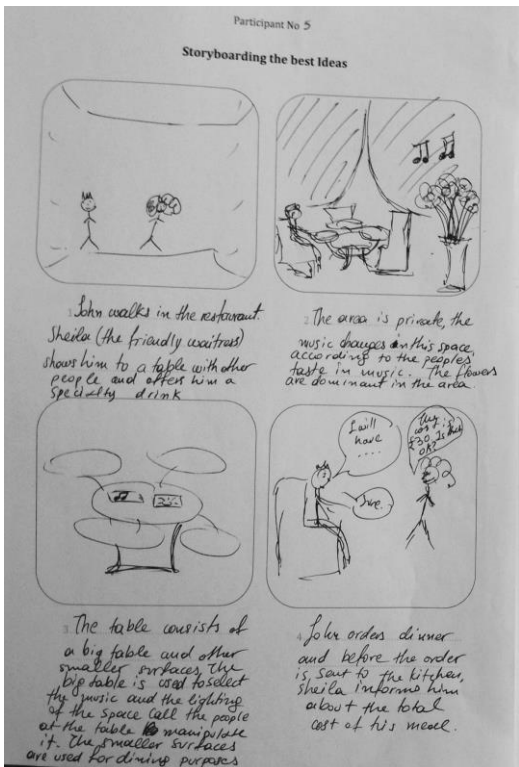 Participant No 5
Storyboarding the best Ideas
1. John walks in the restaurant.
Sheila (the friendly waitress)
shows him to a table with other
people and offers him a
specialty drink
2. The area is private, the
music changes in this space,
according to the peoples'
taste in music. The flowers
are dominant in the area.
3. The table consists of
a big table and other
smaller surfaces. The
big table is used to select
the music and the lighting
of the space (all the people
at the table manipulate
it. The smaller surfaces
are used for dining purposes
I will
have
....
Sure..
The
cost is
£30. Is that
ok?
4. John orders dinner
and before the order
is sent to the kitchen,
Sheila informs him
about the total
cost of his meal.